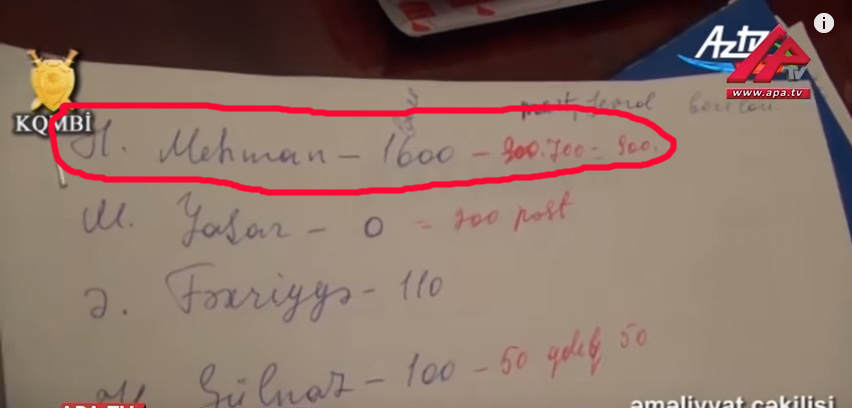 i
AzTV
APA TV
www.apa.tv
KQMBİ
mart,
H. Mehman - 1600 - 900.700 = 900.
M. Yaşar - 0 = 200 post
Ə. Fəxriyyə - 110
Gülnaz - 100 - 50 gəlib 50
APA TV
əməliyyat çəkilişi